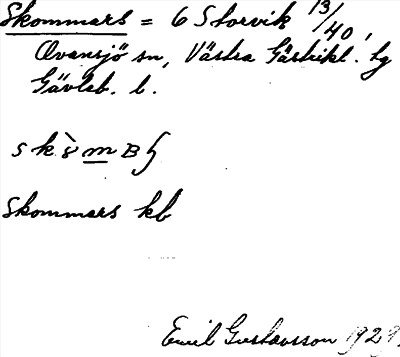 Skommars = 6 Storvik 13/40,
Ovansjö sn, Västra Gästrikl. tg
Gävleb. l.
Skommars kb
Emil Gustavsson 1929.